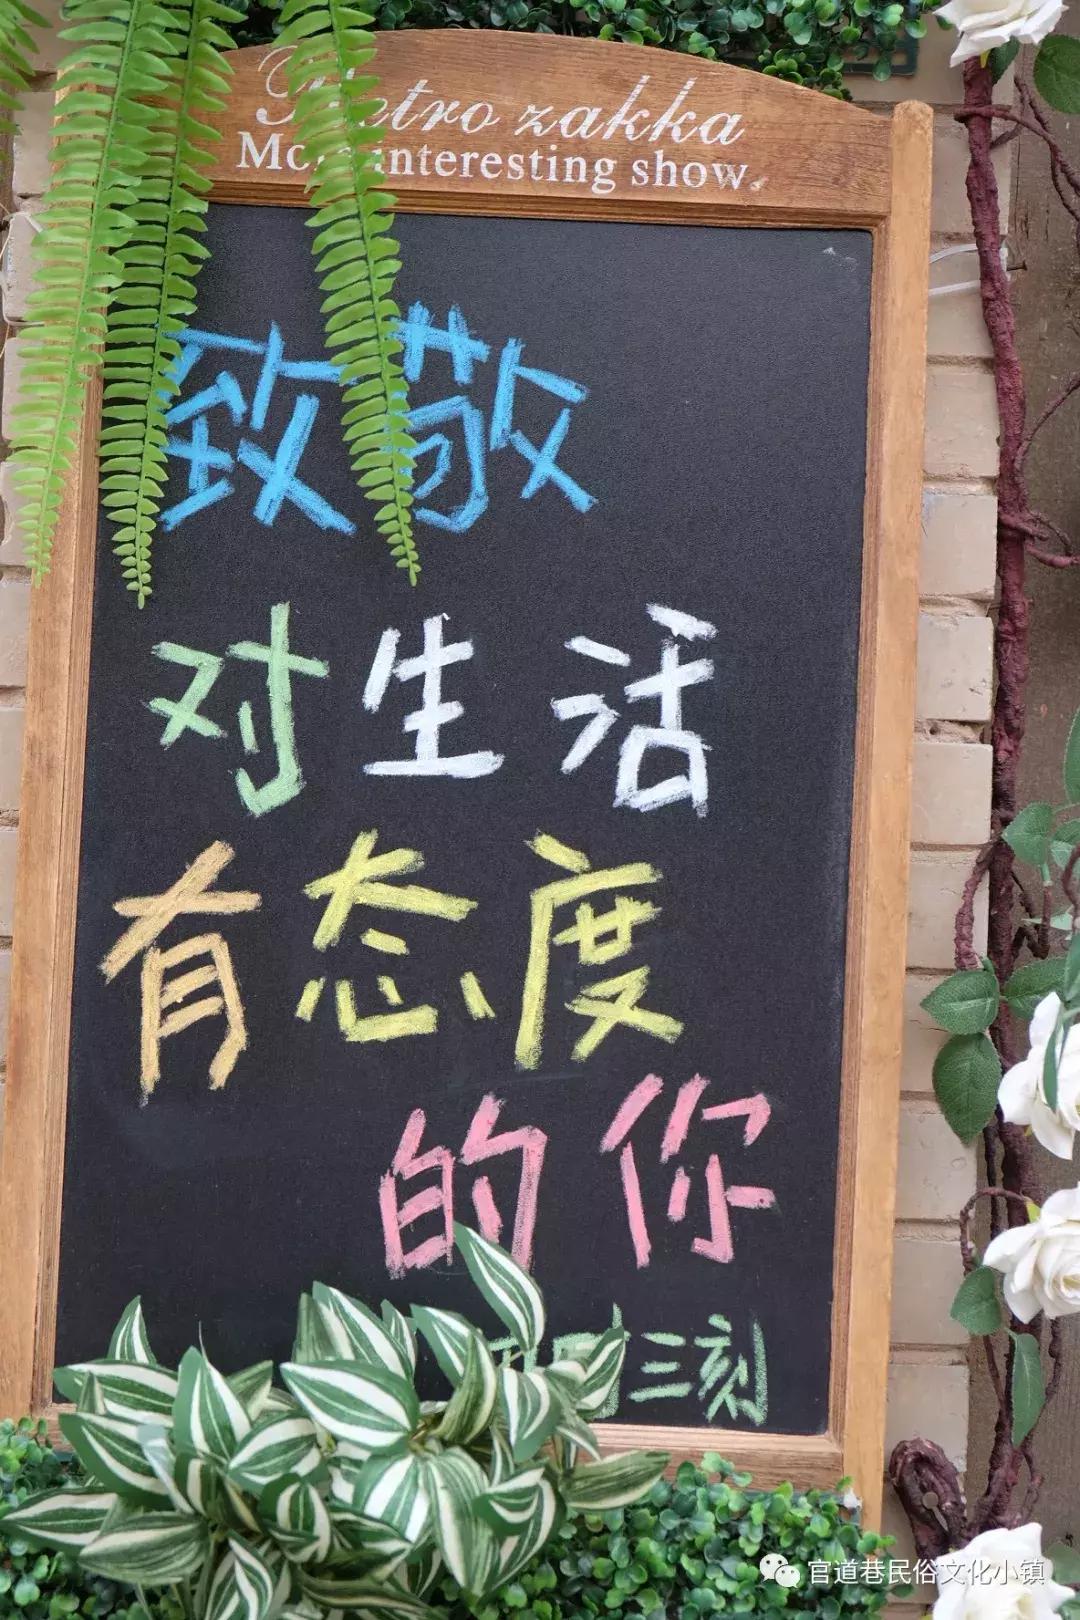 Retro zakka
More interesting show.
致敬
对生活
有态度
的你
时三刻
官道巷民俗文化小镇